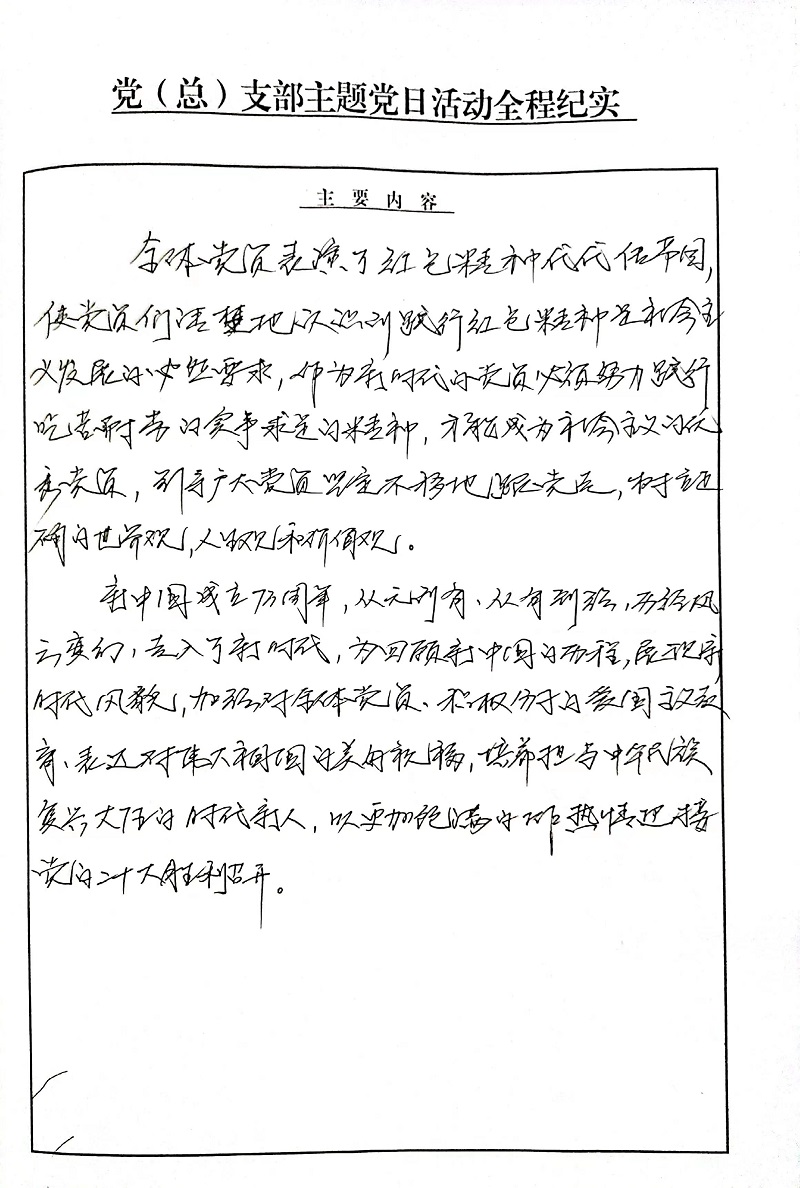 党（总）支部主题党日活动全程纪实
主要内容
全体党员表演了红色精神代代传节目，
使党员们清楚地认识到践行红色精神是社会主
义发展的必然要求，作为新时代的党员必须努力践行
吃苦耐劳的实事求是的精神，才能成为社会主义的优
秀党员，引导广大党员坚定不移地跟党走，树立正
确的世界观，人生观和价值观。
新中国成立73周年，从无到有、从有到强，历经风
云变幻，走入了新时代，为回顾新中国的历程，展现新
时代风貌，加强对全体党员、积极分子的爱国主义教
育、表达对伟大祖国的美好祝福，培养担当中华民族
复兴大任的时代新人，以更加饱满的热情迎接
党的二十大胜利召开。